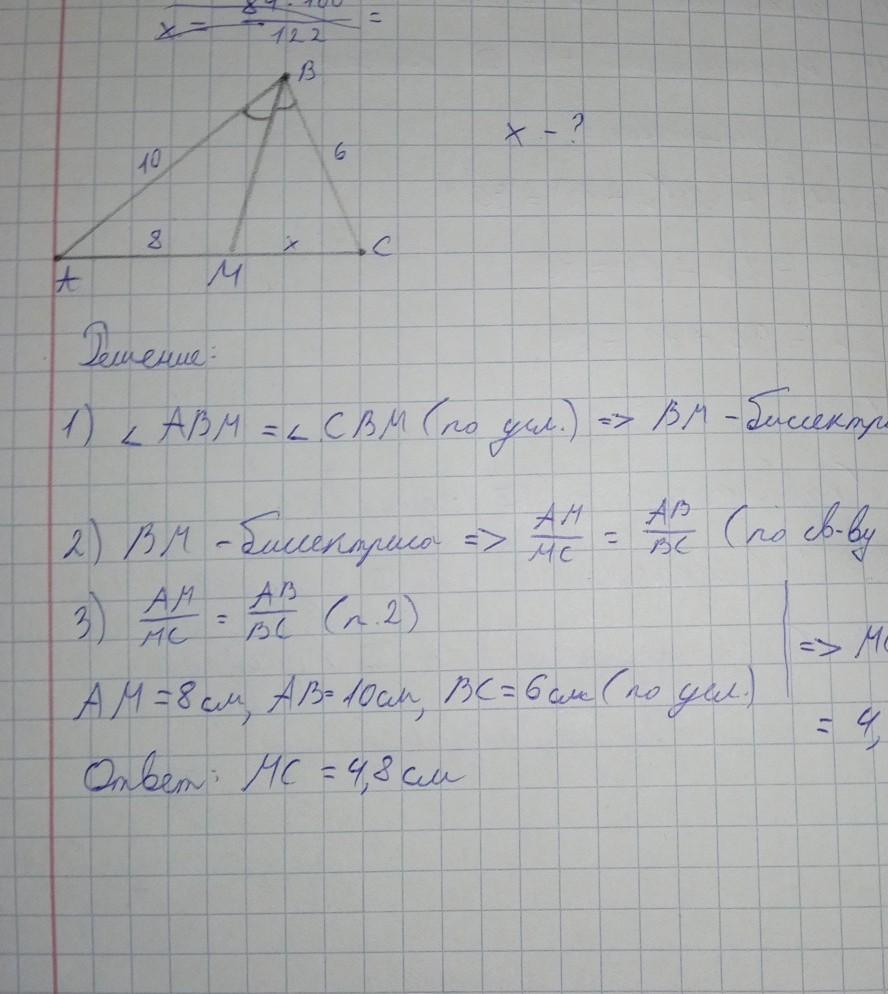 x = 84·100 / 122 =
B
10
6
x - ?
8
x
C
A
M
Решение:
1) ∠ ABM = ∠ CBM (по усл.) => BM - биссектри
2) BM - биссектриса => AM/MC = AB/BC (по св-ву
3) AM/MC = AB/BC (п.2)
=> MC
AM = 8 см, AB = 10 см, BC = 6 см (по усл.)
= 4,
Ответ: MC = 4,8 см